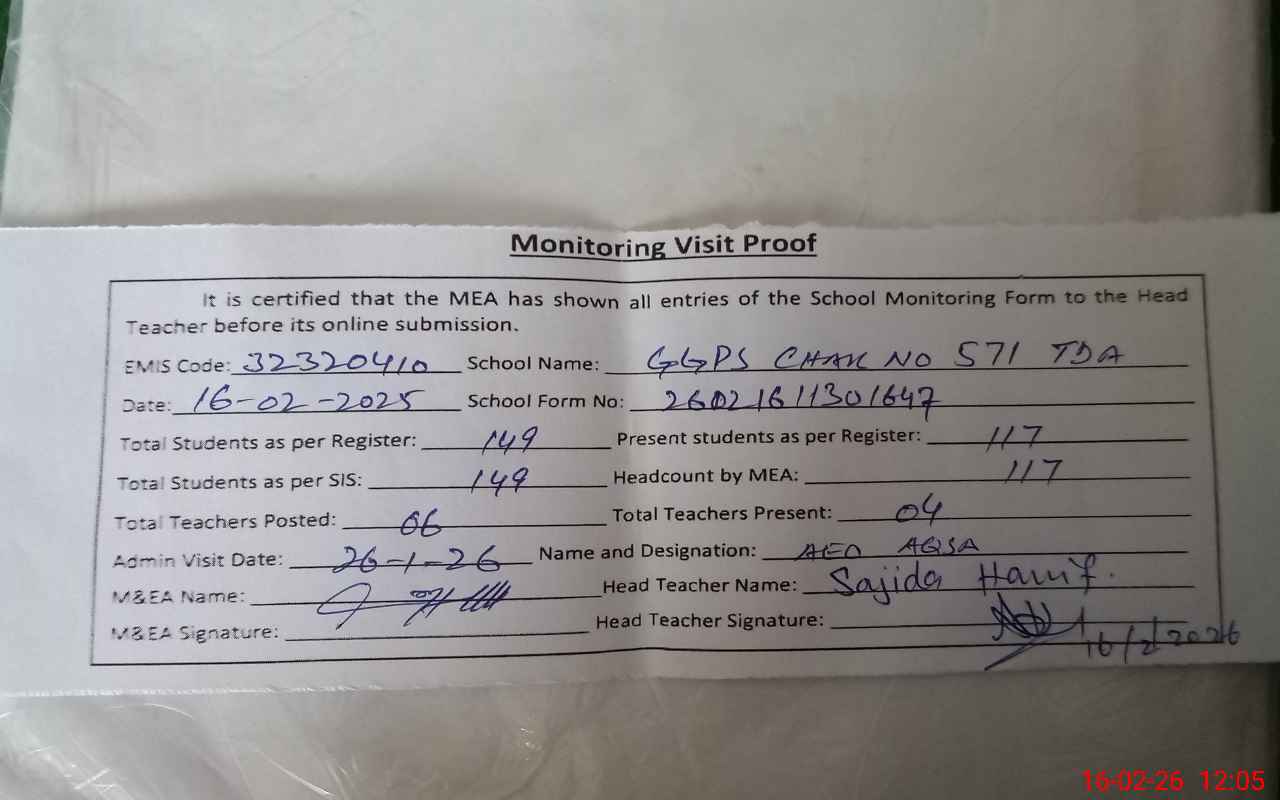 Monitoring Visit Proof
It is certified that the MEA has shown all entries of the School Monitoring Form to the Head
Teacher before its online submission.
EMIS Code: 32320410 School Name: GGPS CHAK NO 571 TDA
Date: 16-02-2025 School Form No: 26021611301647
Total Students as per Register: 149 Present students as per Register: 117
Total Students as per SIS: 149 Headcount by MEA: 117
Total Teachers Posted: 06 Total Teachers Present: 04
Admin Visit Date: 26-1-26 Name and Designation: AEO AQSA
M&EA Name: Head Teacher Name: Sajida Hanif.
M&EA Signature: Head Teacher Signature:
16/2/2026
16-02-26 12:05